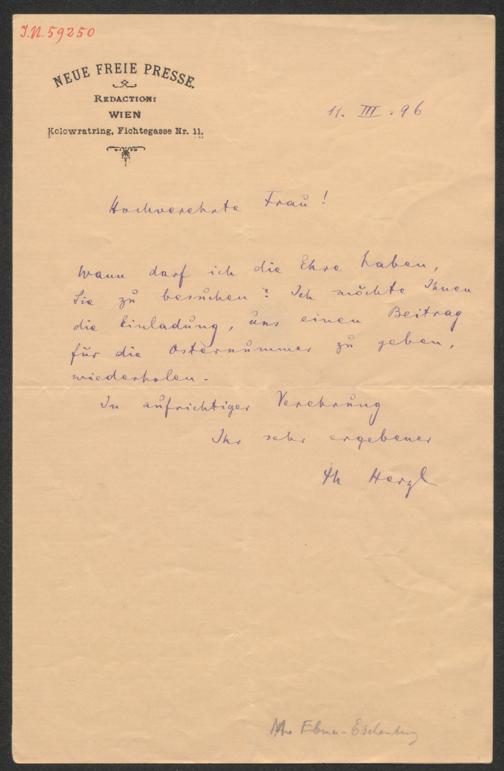 I.N. 59250
NEUE FREIE PRESSE.
REDACTION:
WIEN
Kolowratring, Fichtegasse Nr. 11.
11. III. 96
Hochverehrte Frau!
Wann darf ich die Ehre haben,
Sie zu besuchen? Ich möchte Ihnen
die Einladung, uns einen Beitrag
für die Osternummer zu geben,
wiederholen.
In aufrichtiger Verehrung
Ihr sehr ergebener
Th Herzl
Ebner-Eschenbach